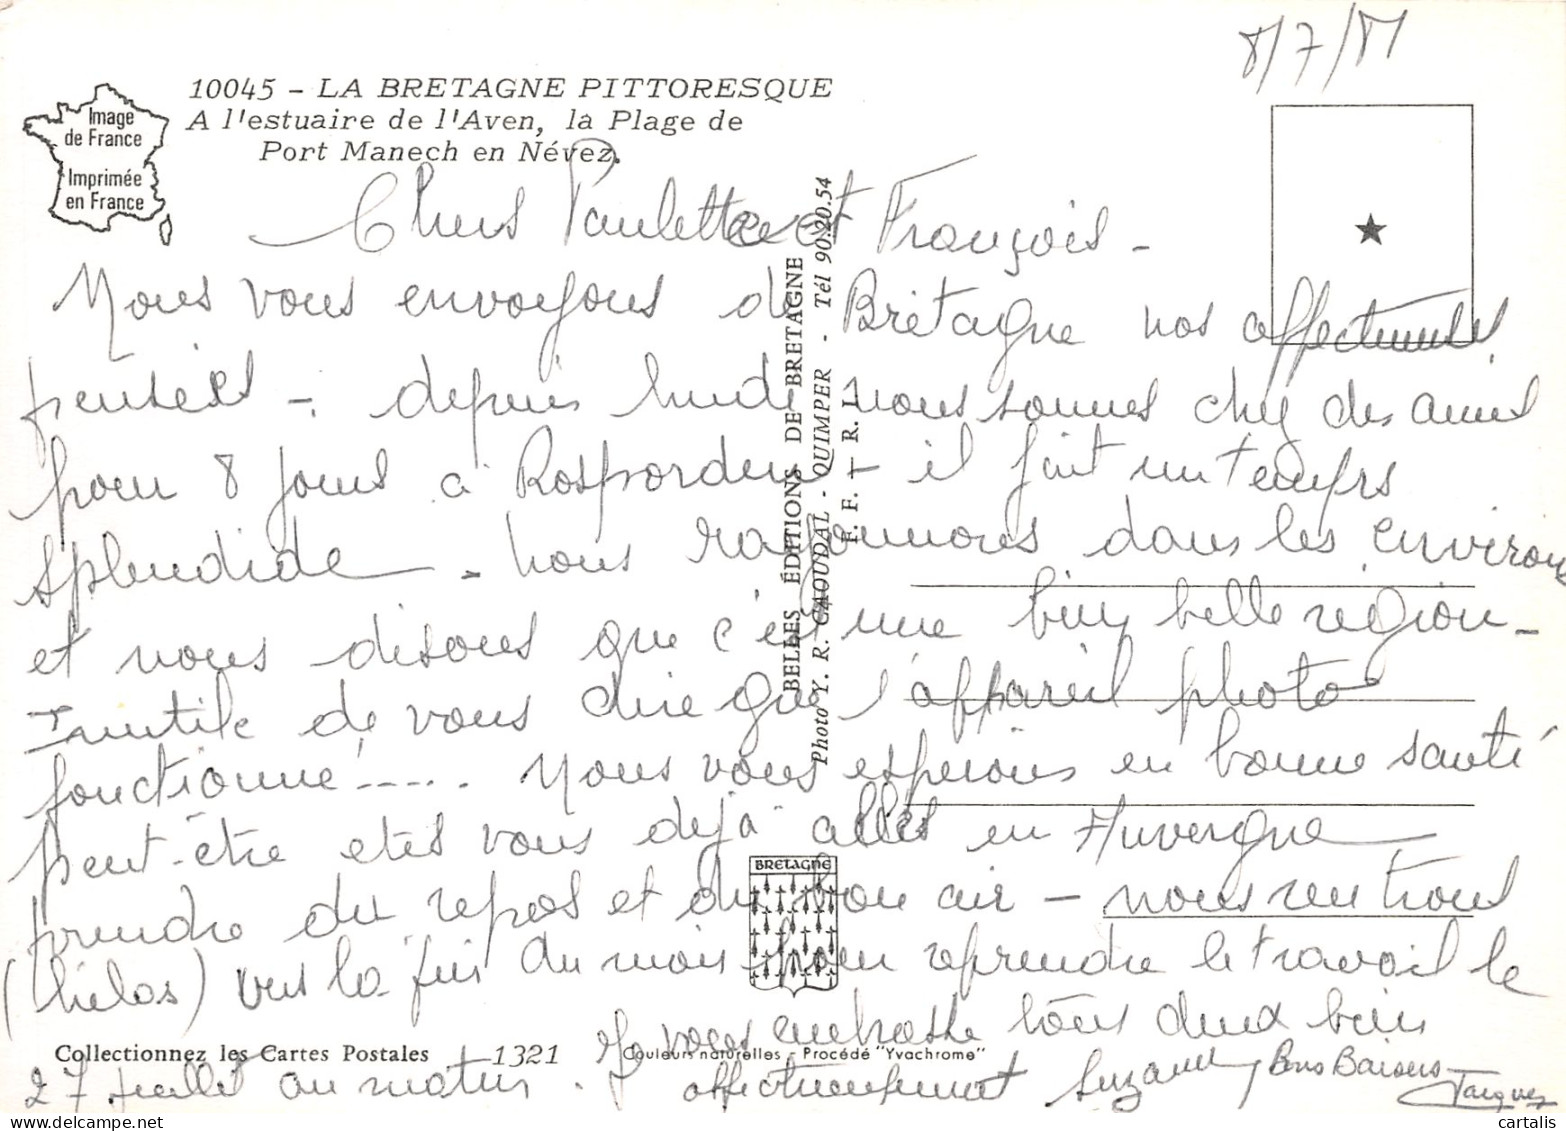 8/7/81
10045 - LA BRETAGNE PITTORESQUE
A l'estuaire de l'Aven, la Plage de
Port Manech en Névez.
Image
de France
Imprimée
en France
Chers Paulette et François -
Nous vous envoyons de Bretagne nos affectueuses
pensées - depuis lundi nous sommes chez des amis
pour 8 jours à Rosporden - il fait un temps
splendide - nous rayonnons dans les environs
et nous disons que c'est une bien belle région -
Inutile de vous dire que l'appareil photo
fonctionne ..... Nous vous espérons en bonne santé
peut-être etes vous dejà allés en Auvergne
prendre du repos et du bon air - nous rentrons
(hélas) vers la fin du mois pour reprendre le travail le
27 juillet au matin. Je vous embrasse tous deux bien
affectueusement Suzanne Bons Baisers
Jacques
BELLES ÉDITIONS DE BRETAGNE
Photo Y. R. CAOUDAL - QUIMPER - Tél 90.20.54
E. F. - R. L.
BRETAGNE
Collectionnez les Cartes Postales 1321 Couleurs naturelles - Procédé "Yvachrome"
www.cartalis